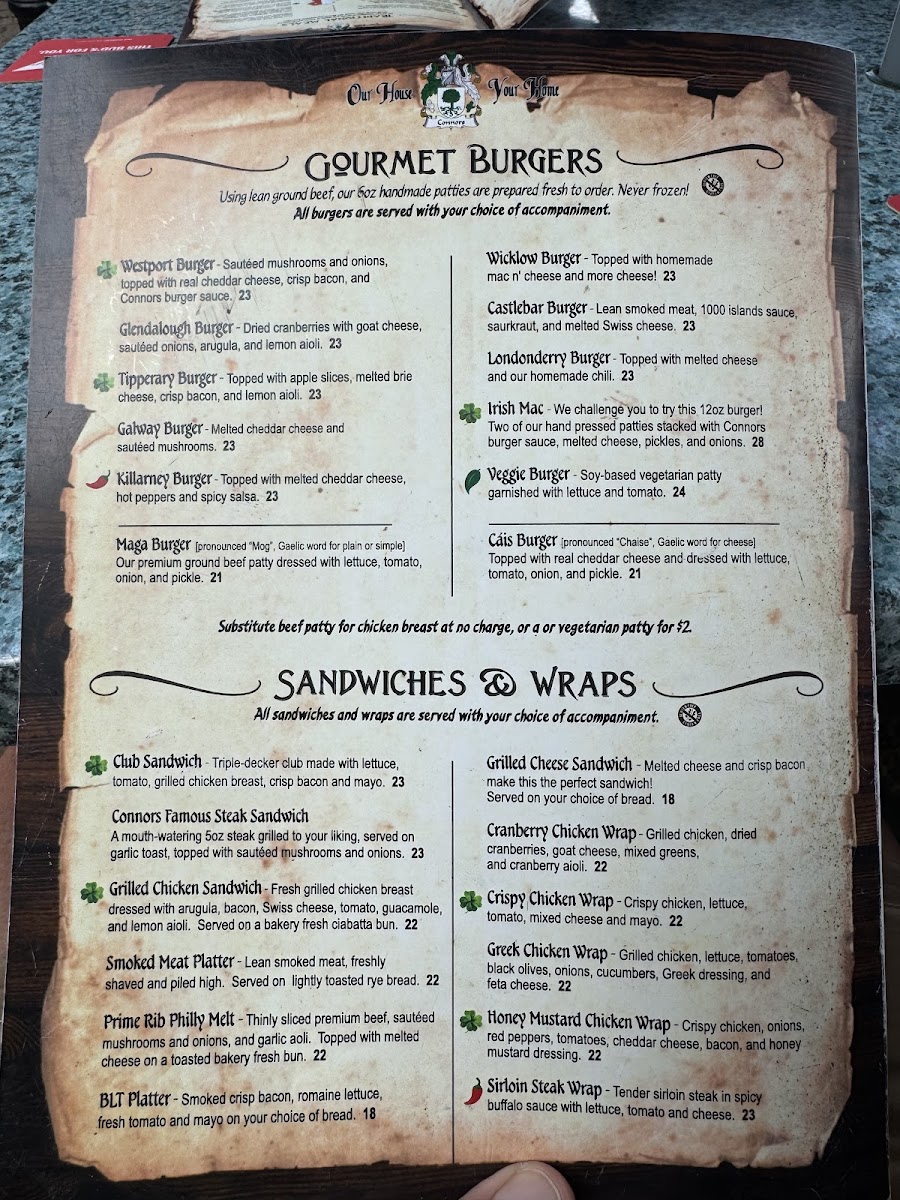 THIS BUD'S FOR YOU.
Our House Your Home
Connors
GOURMET BURGERS
Using lean ground beef, our 6oz handmade patties are prepared fresh to order. Never frozen!
All burgers are served with your choice of accompaniment.
Westport Burger - Sautéed mushrooms and onions,
topped with real cheddar cheese, crisp bacon, and
Connors burger sauce. 23
Glendalough Burger - Dried cranberries with goat cheese,
sautéed onions, arugula, and lemon aioli. 23
Tipperary Burger - Topped with apple slices, melted brie
cheese, crisp bacon, and lemon aioli. 23
Galway Burger - Melted cheddar cheese and
sautéed mushrooms. 23
Killarney Burger - Topped with melted cheddar cheese,
hot peppers and spicy salsa. 23
Maga Burger [pronounced "Mog", Gaelic word for plain or simple]
Our premium ground beef patty dressed with lettuce, tomato,
onion, and pickle. 21
Wicklow Burger - Topped with homemade
mac n' cheese and more cheese! 23
Castlebar Burger - Lean smoked meat, 1000 islands sauce,
saurkraut, and melted Swiss cheese. 23
Londonderry Burger - Topped with melted cheese
and our homemade chili. 23
Irish Mac - We challenge you to try this 12oz burger!
Two of our hand pressed patties stacked with Connors
burger sauce, melted cheese, pickles, and onions. 28
Veggie Burger - Soy-based vegetarian patty
garnished with lettuce and tomato. 24
Cáis Burger [pronounced "Chaise", Gaelic word for cheese]
Topped with real cheddar cheese and dressed with lettuce,
tomato, onion, and pickle. 21
Substitute beef patty for chicken breast at no charge, or a or vegetarian patty for $2.
SANDWICHES & WRAPS
All sandwiches and wraps are served with your choice of accompaniment.
Club Sandwich - Triple-decker club made with lettuce,
tomato, grilled chicken breast, crisp bacon and mayo. 23
Connors Famous Steak Sandwich
A mouth-watering 5oz steak grilled to your liking, served on
garlic toast, topped with sautéed mushrooms and onions. 23
Grilled Chicken Sandwich - Fresh grilled chicken breast
dressed with arugula, bacon, Swiss cheese, tomato, guacamole,
and lemon aioli. Served on a bakery fresh ciabatta bun. 22
Smoked Meat Platter - Lean smoked meat, freshly
shaved and piled high. Served on lightly toasted rye bread. 22
Prime Rib Philly Melt - Thinly sliced premium beef, sautéed
mushrooms and onions, and garlic aoli. Topped with melted
cheese on a toasted bakery fresh bun. 22
BLT Platter - Smoked crisp bacon, romaine lettuce,
fresh tomato and mayo on your choice of bread. 18
Grilled Cheese Sandwich - Melted cheese and crisp bacon
make this the perfect sandwich!
Served on your choice of bread. 18
Cranberry Chicken Wrap - Grilled chicken, dried
cranberries, goat cheese, mixed greens,
and cranberry aioli. 22
Crispy Chicken Wrap - Crispy chicken, lettuce,
tomato, mixed cheese and mayo. 22
Greek Chicken Wrap - Grilled chicken, lettuce, tomatoes,
black olives, onions, cucumbers, Greek dressing, and
feta cheese. 22
Honey Mustard Chicken Wrap - Crispy chicken, onions,
red peppers, tomatoes, cheddar cheese, bacon, and honey
mustard dressing. 22
Sirloin Steak Wrap - Tender sirloin steak in spicy
buffalo sauce with lettuce, tomato and cheese. 23